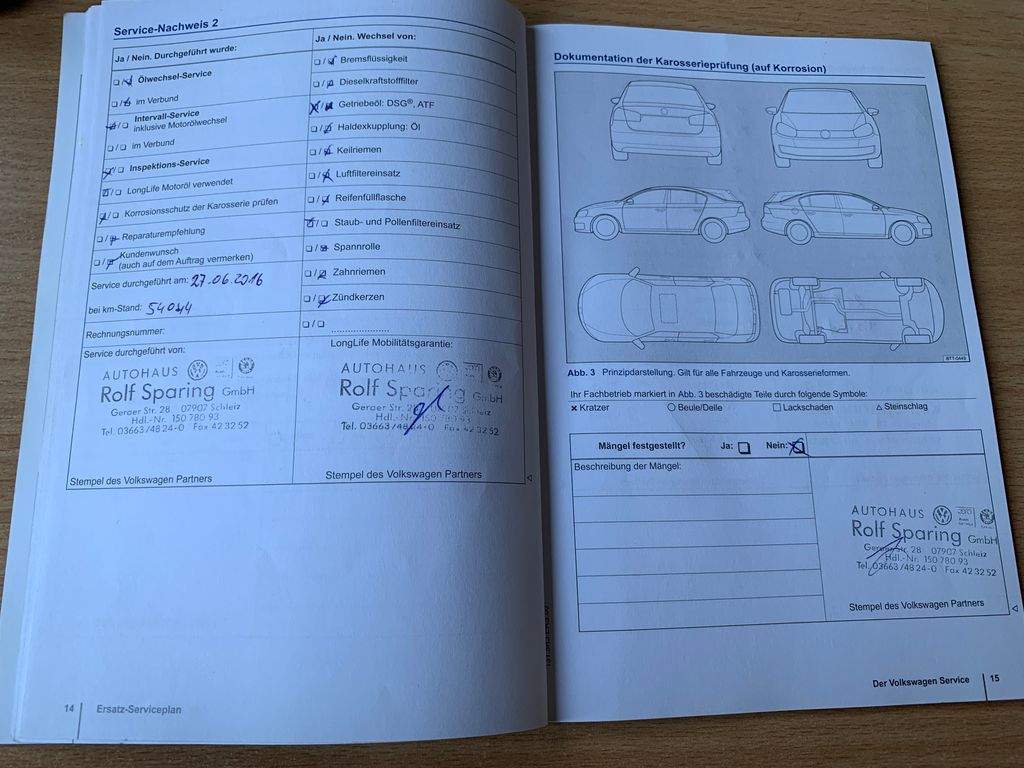 Service-Nachweis 2
Ja / Nein. Durchgeführt wurde:
Ölwechsel-Service
im Verbund
Intervall-Service
inklusive Motorölwechsel
im Verbund
Inspektions-Service
LongLife Motoröl verwendet
Korrosionsschutz der Karosserie prüfen
Reparaturempfehlung
Kundenwunsch
(auch auf dem Auftrag vermerken)
Service durchgeführt am: 27.06.2016
bei km-Stand: 54044
Rechnungsnummer:
Service durchgeführt von:
AUTOHAUS
Rolf Sparing GmbH
Geraer Str. 28 07907 Schleiz
Hdl.-Nr. 150 780 93
Tel. 03663/48 24-0 Fax 42 32 52
Stempel des Volkswagen Partners
Ja / Nein. Wechsel von:
Bremsflüssigkeit
Dieselkraftstofffilter
Getriebeöl: DSG®, ATF
Haldexkupplung: Öl
Keilriemen
Luftfiltereinsatz
Reifenfüllflasche
Staub- und Pollenfiltereinsatz
Spannrolle
Zahnriemen
Zündkerzen
LongLife Mobilitätsgarantie:
AUTOHAUS
Rolf Sparing GmbH
Geraer Str. 28 07907 Schleiz
Hdl.-Nr. 150 780 93
Tel. 03663/48 24-0 Fax 42 32 52
Stempel des Volkswagen Partners
14 Ersatz-Serviceplan
Dokumentation der Karosserieprüfung (auf Korrosion)
BTT-0449
Abb. 3 Prinzipdarstellung. Gilt für alle Fahrzeuge und Karosserieformen.
Ihr Fachbetrieb markiert in Abb. 3 beschädigte Teile durch folgende Symbole:
× Kratzer ○ Beule/Delle □ Lackschaden △ Steinschlag
Mängel festgestellt? Ja: Nein:
Beschreibung der Mängel:
AUTOHAUS
Rolf Sparing GmbH
Geraer Str. 28 07907 Schleiz
Hdl.-Nr. 150 780 93
Tel. 03663/48 24-0 Fax 42 32 52
Stempel des Volkswagen Partners
Der Volkswagen Service 15